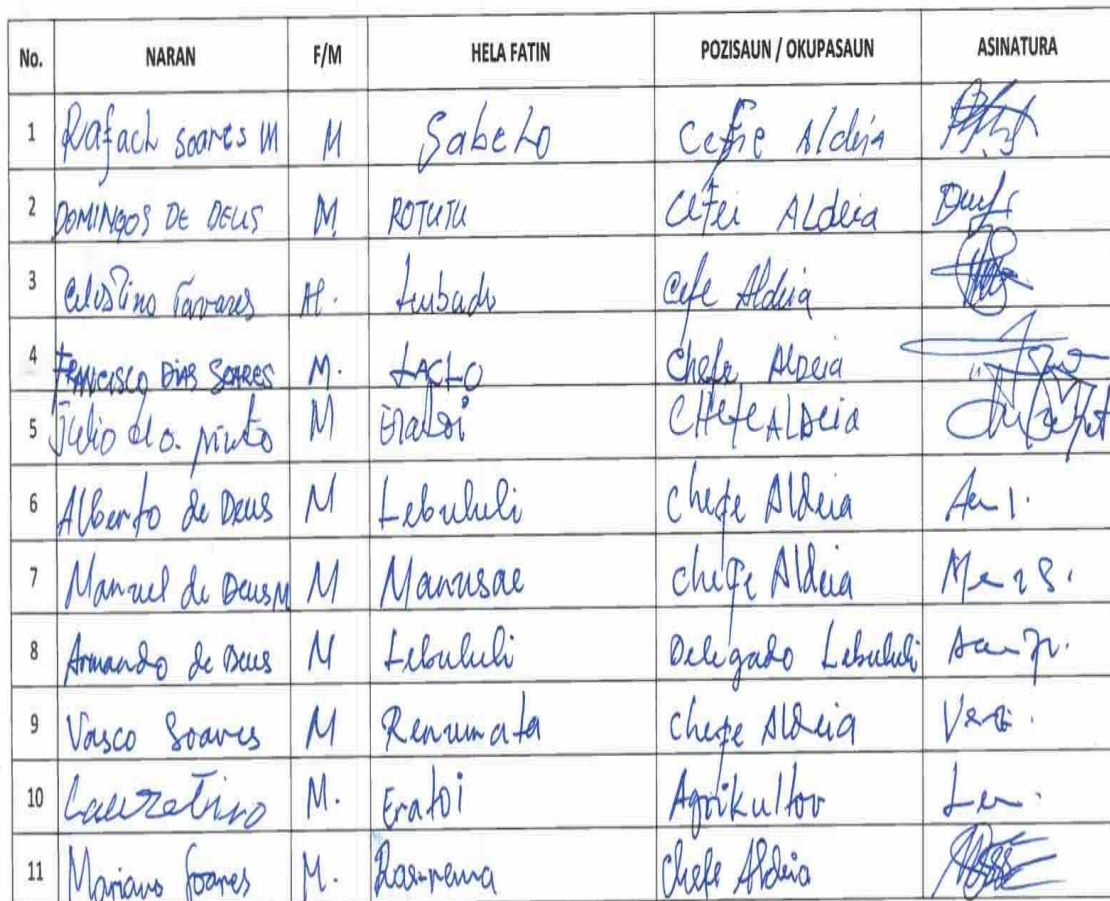 No. NARAN F/M HELA FATIN POZISAUN / OKUPASAUN ASINATURA
1 Rafael Soares M M Sabelo Cefie Aldeia
2 DOMINGOS DE DEUS M. ROTUTU Cefei ALdeia
3 Celestino Tavares M. Cefe Aldeia
4 FRANCISCO DIAS SOARES M. LACLO Chefe ALDeia
5 Julio do. pinto M Eratoi CHefe ALDeia
6 Alberto de Deus M Lebululi Chefe Aldeia
7 Manuel de Deus M M Manusae chefe Aldeia
8 Armando de Deus M Lebululi Delegado Lebululi
9 Vasco Soares M Renumata chefe Aldeia
10 Lauretino M. Eratoi Agrikultor
11 Mariano Soares M. Chefe Aldeia